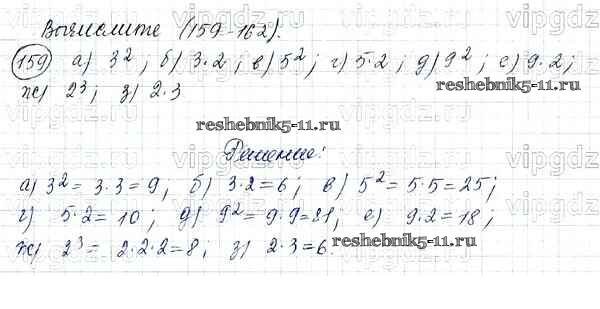 Вычислите (159-162).
159 а) 3²; б) 3·2; в) 5²; г) 5·2; д) 9²; е) 9·2;
ж) 2³; з) 2·3
reshebnik5-11.ru
reshebnik5-11.ru
Решение:
а) 3² = 3·3 = 9; б) 3·2 = 6; в) 5² = 5·5 = 25;
г) 5·2 = 10; д) 9² = 9·9 = 81; е) 9·2 = 18;
ж) 2³ = 2·2·2 = 8; з) 2·3 = 6.
reshebnik5-11.ru
vipgdz
vipgdz
vipgdz
vipgdz